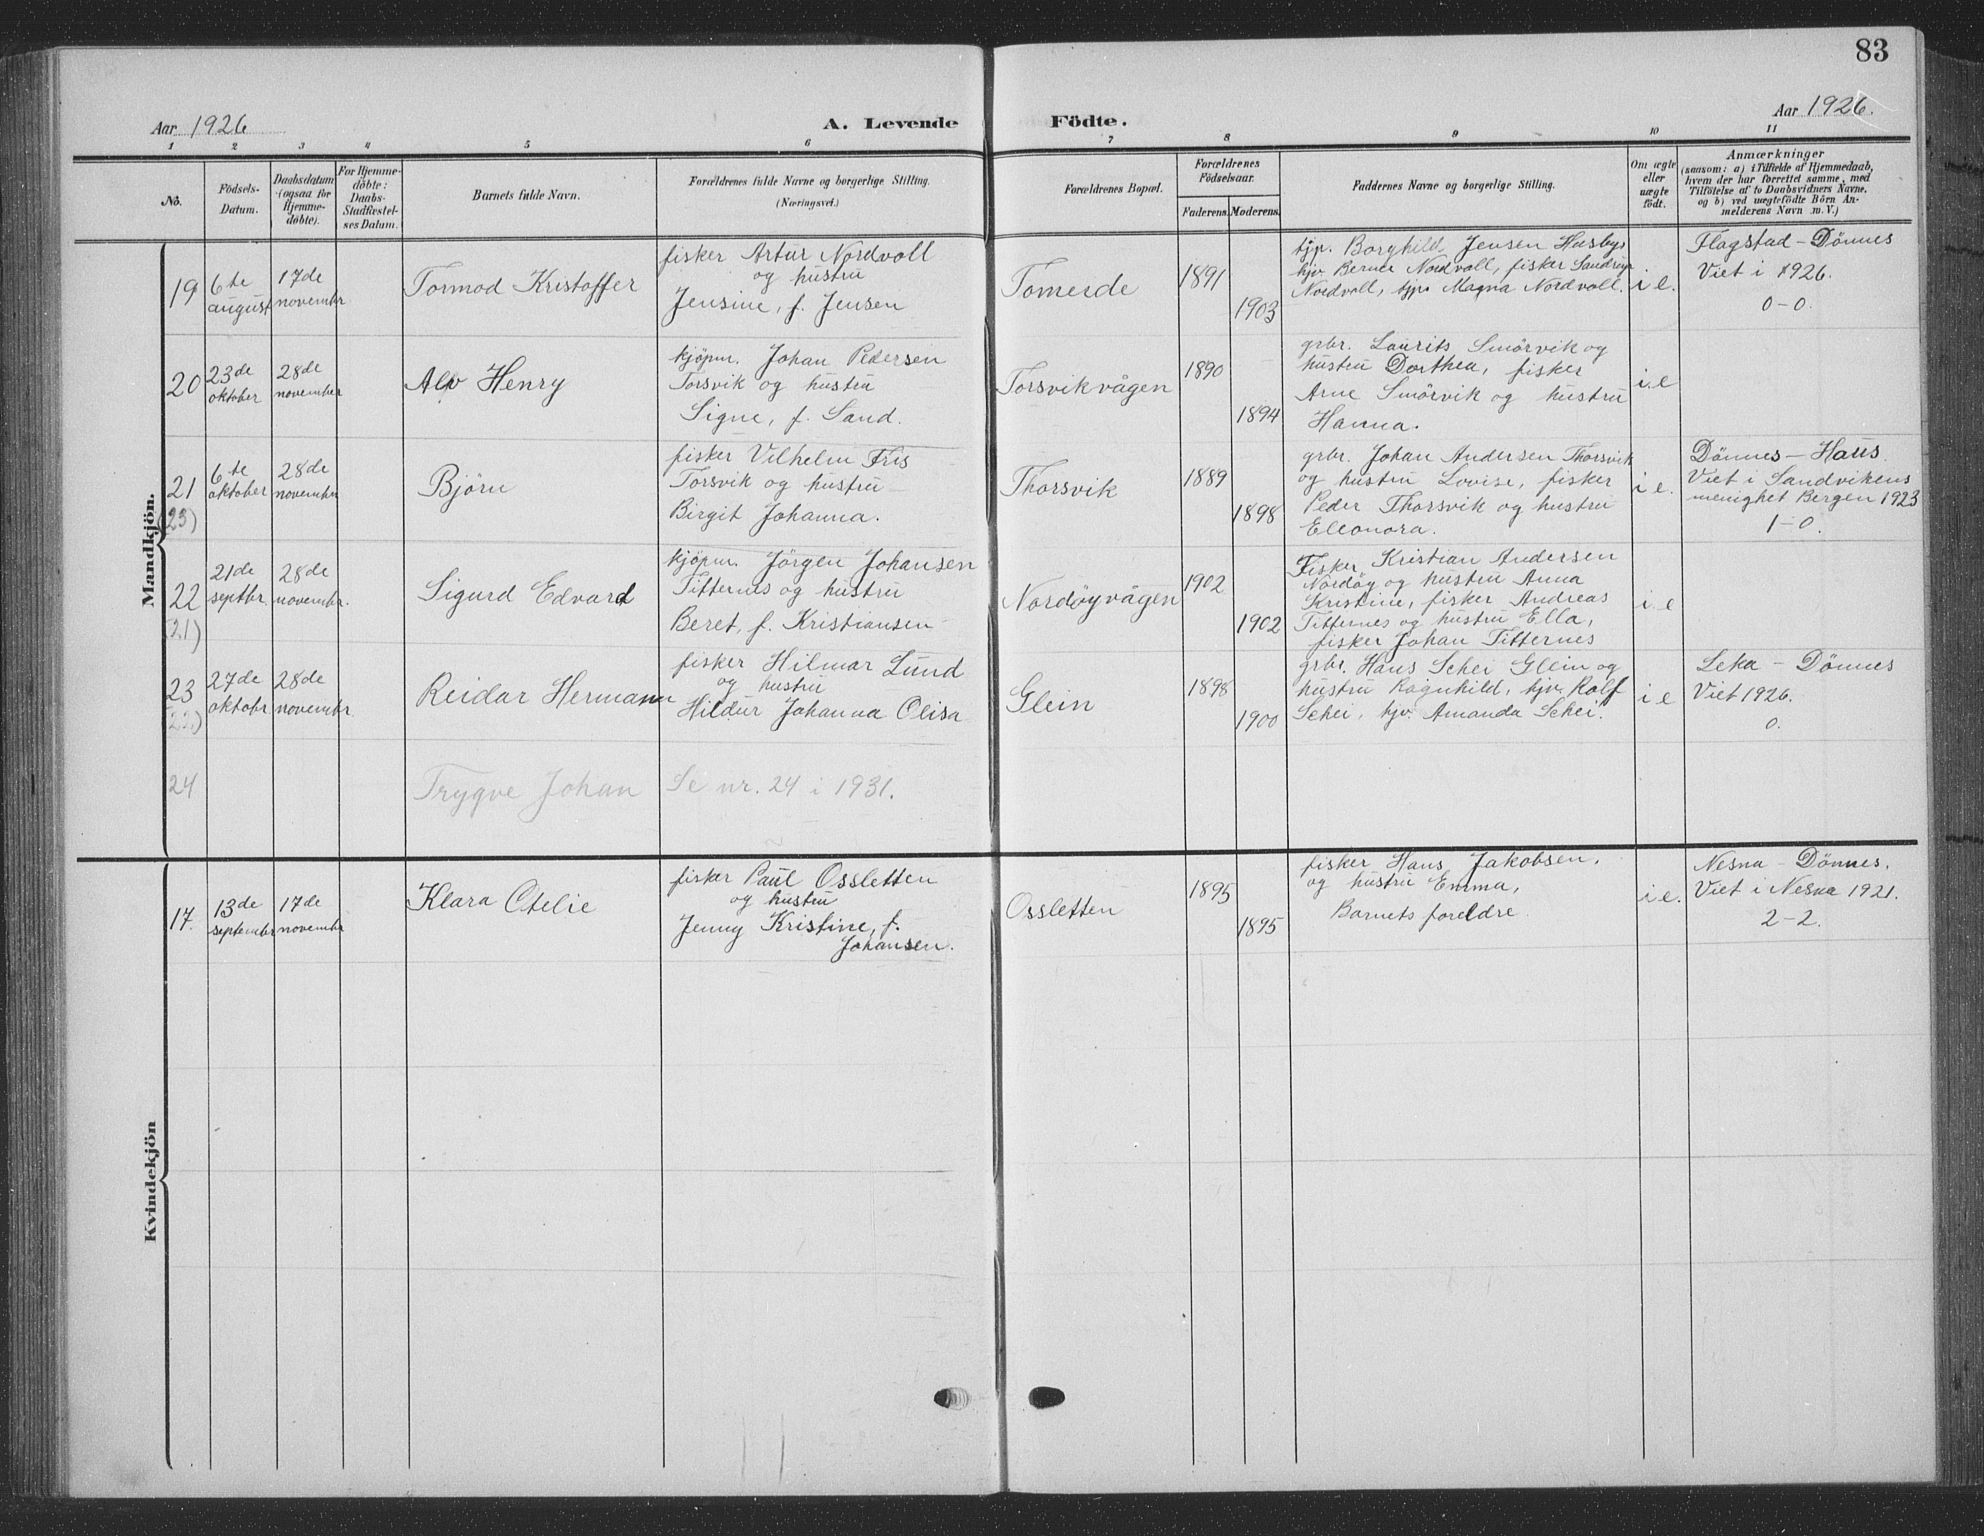 83
Aar 1926
A. Levende
Födte.
Aar 1926.
1 2 3 4 5 6 7 8 9 10 11
No.
Födsels-
Datum.
Daabsdatum
(ogsaa for
Hjemme-
döbte).
For Hjemme-
döbte:
Daabs-
Stadfæstel-
ses Datum.
Barnets fulde Navn.
Forældrenes fulde Navne og borgerlige Stilling.
(Næringsvei.)
Forældrenes Bopæl.
Forældrenes
Födselsaar.
Faderens.
Moderens.
Faddernes Navne og borgerlige Stilling.
Om ægte
eller
uægte
födt.
Anmærkninger
(saasom: a) i Tilfælde af Hjemmedaab,
hvem der har forrettet samme, med
Tilföielse af to Daabsvidners Navne,
og b) ved uægtefödte Börn An-
melderens Navn m. V.)
Mandkjön.
19
6te
august
17de
novembr
Tormod Kristoffer
fisker Artur Nordvoll
og hustru
Jensine, f. Jensen
Tomeide
1891
1903
tjp. Borghild Jensen Husby,
hjv. Berner Nordvoll, fisker
Nordvoll, tjp. Magna Nordvoll.
i e.
Flagstad - Dönnes
Viet i 1926.
0-0.
20
23de
oktober
28de
november
Alv Henry
kjöpm. Johan Pedersen
Torsvik og hustru
Signe, f. Sand.
Torsvikvågen
1890
1894
grbr. Laurits Smörvik og
hustru Dorthea, fisker
Arne Smörvik og hustru
Hanna.
i. e
21
(23)
6te
oktober
28de
novembr
Björn
fisker Vilhelm Friis
Torsvik og hustru
Birgit Johanna.
Thorsvik
1889
1898
grbr. Johan Andersen Thorsvik
og hustru Lovise, fisker
Peder Thorsvik og hustru
Elleonora.
i e.
Dönnes - Haus.
Viet i Sandvikens
menighet Bergen 1923
1-0.
22
(21)
21de
septbr.
28de
novembr.
Sigurd Edvard
kjöpm. Jörgen Johansen
Titternes og hustru
Beret, f. Kristiansen
Nordöyvågen
1902
1902
Fisker Kristian Andersen
Nordöy og hustru Anna
Kristine, fisker Andreas
Titternes og hustru Ella,
fisker Johan Titternes
i e
23
(22)
27de
oktobr
28de
novembr.
Reidar Hermann
fisker Hilmar Lund
og hustru
Hildur Johanna Olisa
Glein
1898
1900
grbr. Hans Schei Glein og
hustru Ragnhild, hjv. Rolf
Schei, hjv. Amanda Schei.
i e
Leka - Dönnes
Viet 1926.
0.
24
Trygve Johan
Se nr. 24 i 1931.
Kvindekjön
17.
13de
septembr
17de
novembr
Klara Otelie
fisker Paul Ossletten
og hustru
Jenny Kristine, f.
Johansen.
Ossletten
1895
1895
fisker Hans Jakobsen,
og hustru Emma,
Barnets foreldre
i e.
Nesna - Dönnes.
Viet i Nesna 1921.
2-2.